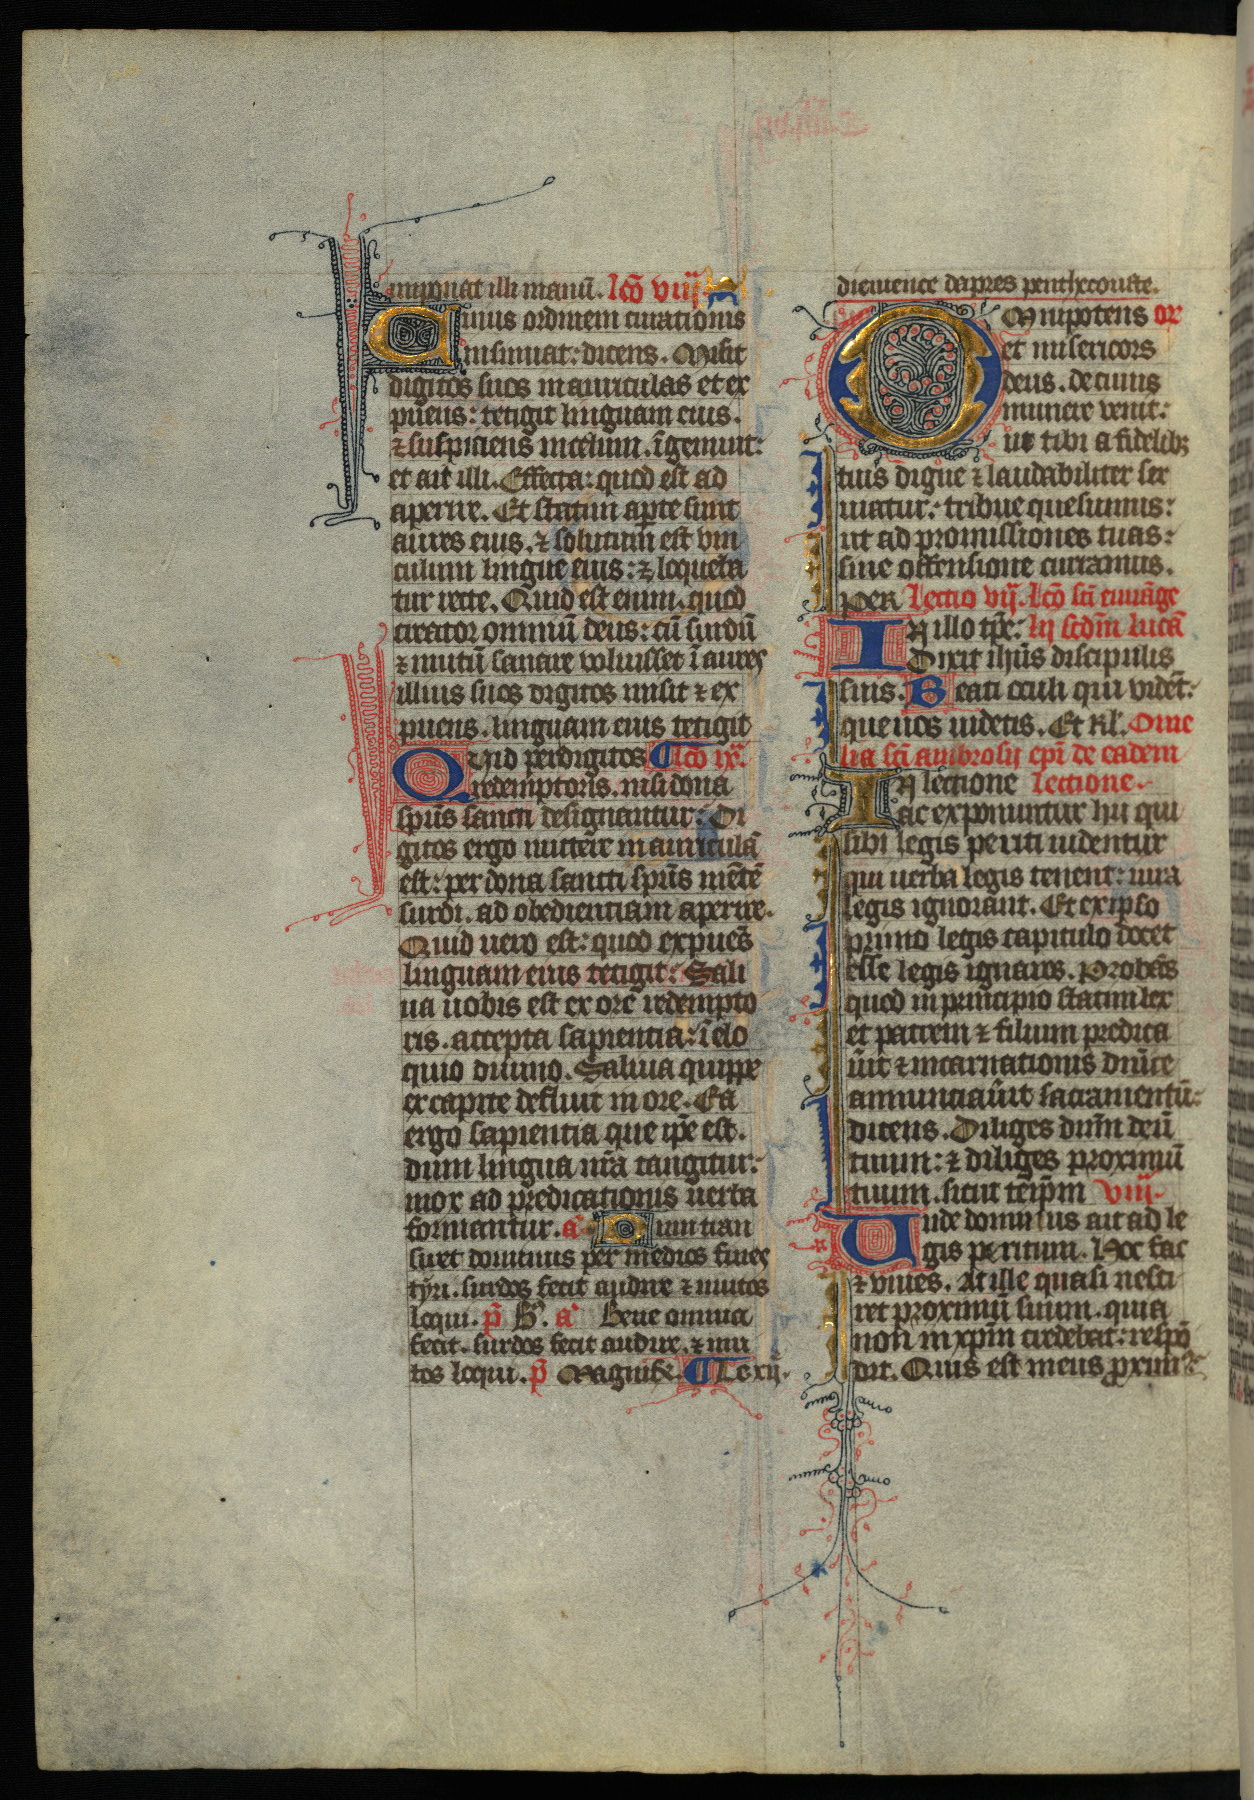 imponat illi manū. lcō viij
Cuius ordinem curationis
insinuat: dicens. Misit
digitos suos in auriculas et ex
puens: tetigit linguam eius.
⁊ suspiciens in celum. īgemuit:
et ait illi. Effecta: quod est ad
aperire. Et statim apte sunt
aures eius. ⁊ solutum est vin
culum lingue eius: ⁊ loqueba
tur recte. Quid est enim. quod
creator omniū deus: cū surdū
⁊ mutū sanare voluisset ī aures
illius suos digitos misit ⁊ ex
puens. linguam eius tetigit
Quid per digitos lcō ix.
redemptoris. nisi dona
spūs sancti designantur: Di
gitos ergo mittere in auriculā
est: per dona sancti spūs mētē
surdi. ad obedientiam aperire.
Quid uero est: quod expuēs
linguam eius tetigit: Sali
ua uobis est ex ore redempto
ris. accepta sapientia: ī elo
quio diuino. Saliua quippe
ex capite defluit in ore. Ea
ergo sapientia que ip̄e est.
dum lingua nr̄a tangitur:
mox ad predicationis uerba
formantur. a Dum tran
siret dominus per medios fines
tyri. surdos fecit audire ⁊ mutos
loqui. p̄ a Bene omnia
fecit. surdos fecit audire. ⁊ mu
tos loqui. p̄ Magnifi. xij.
diemence dapres penthecouste.
Omnipotens or
et misericors
deus. de cuius
munere venit:
ut tibi a fidelibꝫ
tuis digne ⁊ laudabiliter ser
uiatur: tribue quesumus:
ut ad promissiones tuas:
sine offensione curramus.
per Lectio vij. lcō sci euuāge
In illo tp̄e: lij scdm lucā
Dixit ihūs discipulis
suis. Beati oculi qui vidēt:
que uos uidetis. Et rl'. Ome
lia sci ambrosij epī de eadem
In lectione lectione.
ac exponuntur hii qui
sibi legis periti uidentur
qui uerba legis tenent: iura
legis ignorant. Et ex ipso
primo legis capitulo docet
esse legis ignaros. Probās
quod in principio statim lex
et patrem ⁊ filium predica
uit ⁊ incarnationis dnīce
annunciauit sacramentū:
dicens. Diliges dnm deū
tuum: ⁊ diliges proximū
tuum. sicut teip̄m viij.
Unde dominus ait ad le
gis peritum. Hoc fac
⁊ viues. At ille quasi nesci
ret proximū suum. quia
non in xp̄m credebat: respō
dit. Quis est meus proximꝰ: